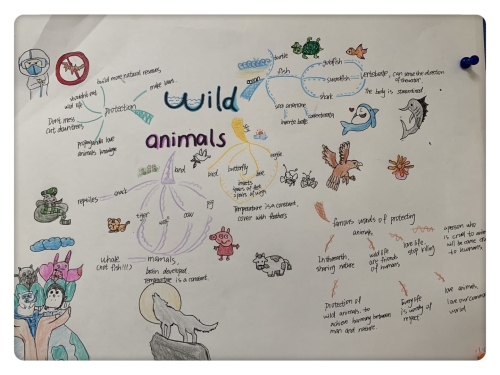 build more natural reserves
make laws
shouldn't eat
wild life
protection
Don't mess
cut down trees
propaganda love
animals knowledge
wild
animals
ocean
turtle
fish
goldfish
swordfish
shark
vertebrate, can sense the direction
of the water.
The body is streamlined.
sea anemone
invertebrate
sky
bird
butterfly
bee
eagle
insects
pairs of
pairs of wings
Temperature is a constant,
cover with feathers
land
reptiles
snake
tiger
wolf
cow
pig
whale
(not fish!!!)
mamals,
brain developed,
temperature is a constant.
famous words of protecting
animals
In the earth,
sharing nature
wild life
are friends
of humans
love life
stop killing
a person who
is cruel to
will be came
to humans.
Protection of
wild animals. to
achieve harmony between
man and nature.
Every life
is worthy of
respect
love animals,
love our common
world